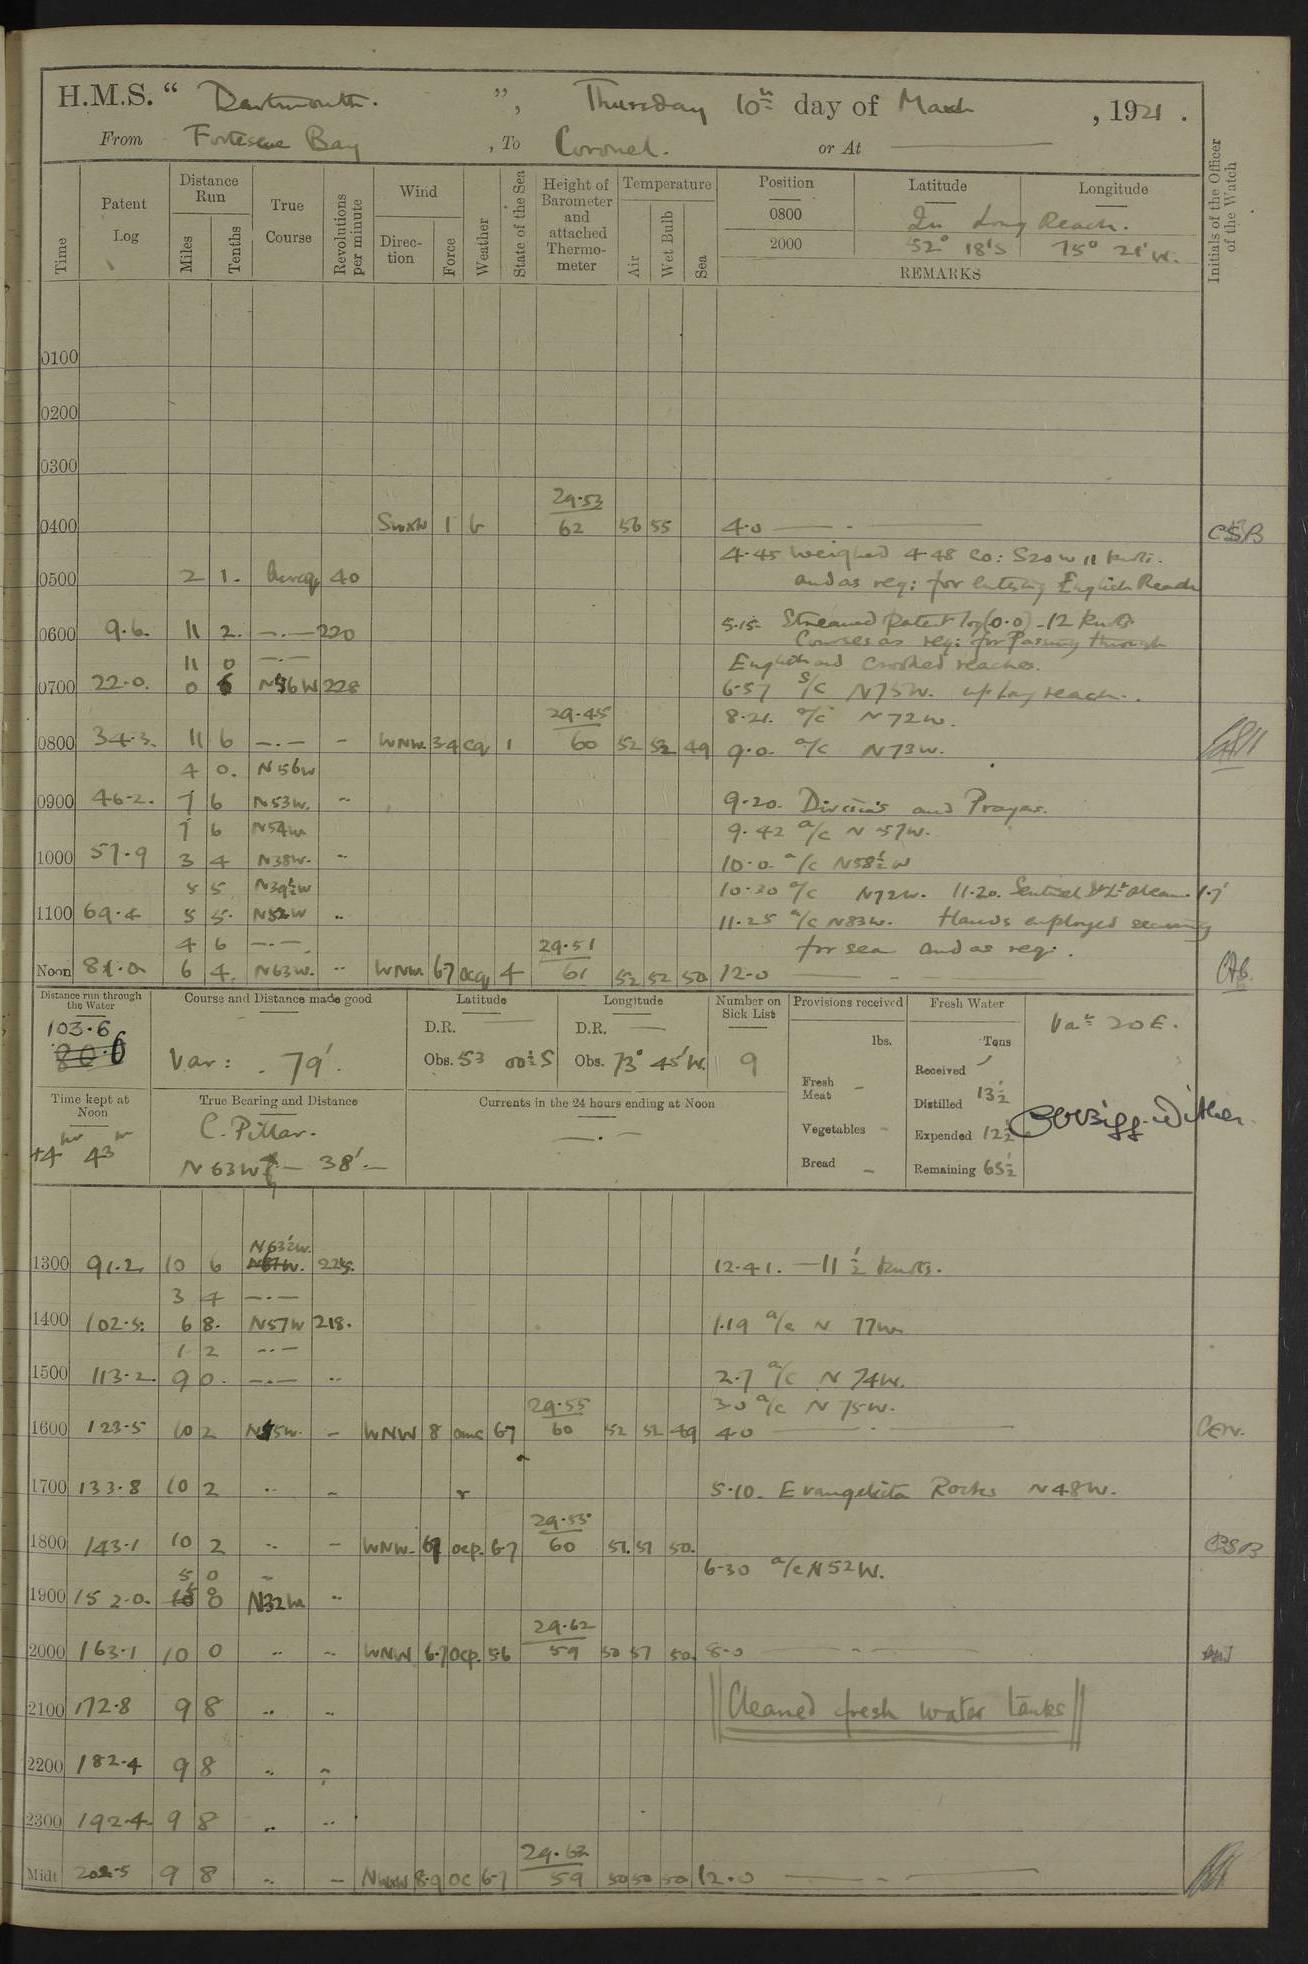 H.M.S. “ Dartmouth. ”, Thursday 10th day of March , 1921 .
From Fortescue Bay , To Coronel. or At
Time Patent Log Distance Run Miles Tenths True Course Revolutions per minute Wind Direction Force Weather State of the Sea Height of Barometer and attached Thermometer Temperature Air Wet Bulb Sea Position Latitude Longitude Initials of the Officer of the Watch
0800 In Long Reach.
2000 52° 18'S 75° 21' W.
REMARKS
0100
0200
0300
29.53
0400 SWxW 1 b 62 56 55 4.0 CSB
4.45 Weighed 4.48 Co: S20W 11 knots.
0500 2 1. 40 and as req: for entering English Reach
0600 9.6. 11 2. 220 5.15 Streamed patent log (0.0) - 12 knots
Courses as req: for Passing through
11 0 English and Crooked reaches.
0700 22.0. 0 6 N56W 228 6.57 S/C N75W. up Long reach.
29.45 8.21. a/c N72W.
0800 34.3. 11 6 WNW. 3.4 cq 1 60 52 52 49 9.0. a/c N73W.
4 0. N56W
0900 46.2. 7 6 N53W. 9.20. Divisions and Prayers.
7 6 N54W 9.42 a/c N 57W.
1000 57.9 3 4 N38W. 10.0. a/c N58½W
5 5 N39½W 10.30 a/c N72W. 11.20. Sentinel abeam 1.7'
1100 69.4 5 5. N52W 11.25 a/c N83W. Hands employed securing
4 6 29.51 for sea and as req.
Noon 81.0 6 4. N63W. WNW. 6.7 ocq 4 61 52 52 50 12.0
Distance run through the Water 103.6 80.6
Course and Distance made good Var: 79'.
Latitude D.R. Obs. 53 00½ S
Longitude D.R. Obs. 73° 45' W.
Number on Sick List 9
Provisions received lbs. Fresh Meat Vegetables Bread
Fresh Water Tons Received Distilled 13½ Expended 12½ Remaining 65½
Var 20E.
Time kept at Noon +4 hr 43 m
True Bearing and Distance C. Pillar. N63W — 38'
Currents in the 24 hours ending at Noon
Bigg-Wither
N63½W.
1300 91.2 10 6 N61W. 225. 12.41. — 11½ knots.
3 4
1400 102.5. 6 8. N57W 218. 1.19 a/c N 77W
1 2
1500 113.2 9 0. 2.7 a/c N 74W.
29.55 3.0 a/c N 75W.
1600 123.5 10 2 N55W. WNW 8 omc 6.7 60 52 52 49 4.0 CEW.
1700 133.8 10 2 r 5.10. Evangelista Rocks N48W.
29.55
1800 143.1 10 2 WNW. 67 ocp. 6.7 60 51. 51 50. CSB
5 0 6.30 a/c N52W.
1900 152.0. 5 0 N32W
29.62
2000 163.1 10 0 WNW 6.7 ocp. 5.6 59 50 51 50. 8.0
2100 172.8 9 8 Cleaned fresh water tanks
2200 182.4 9 8
2300 192.4 9 8
29.62
Midt 202.5 9 8 NWxW 8.9 oc 6.7 59 50 50 50 12.0